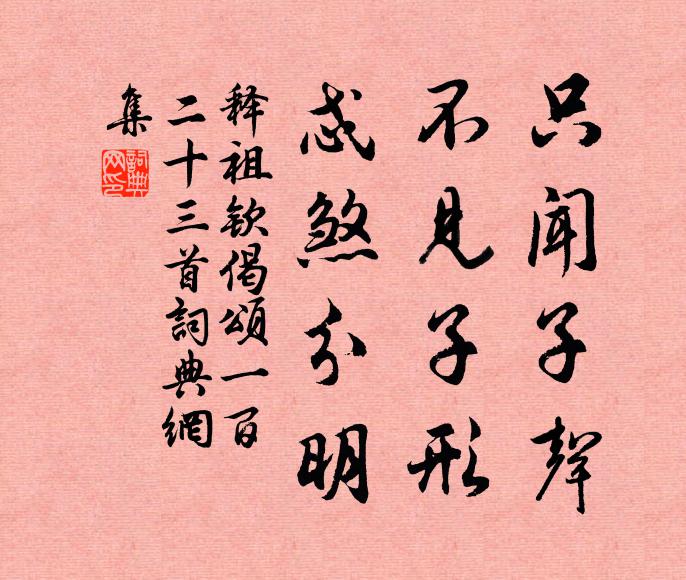 只闻子聲
不見子形
忒煞分明
释祖欽偈頌一百
二十三首詞典網
集
詞典
网印